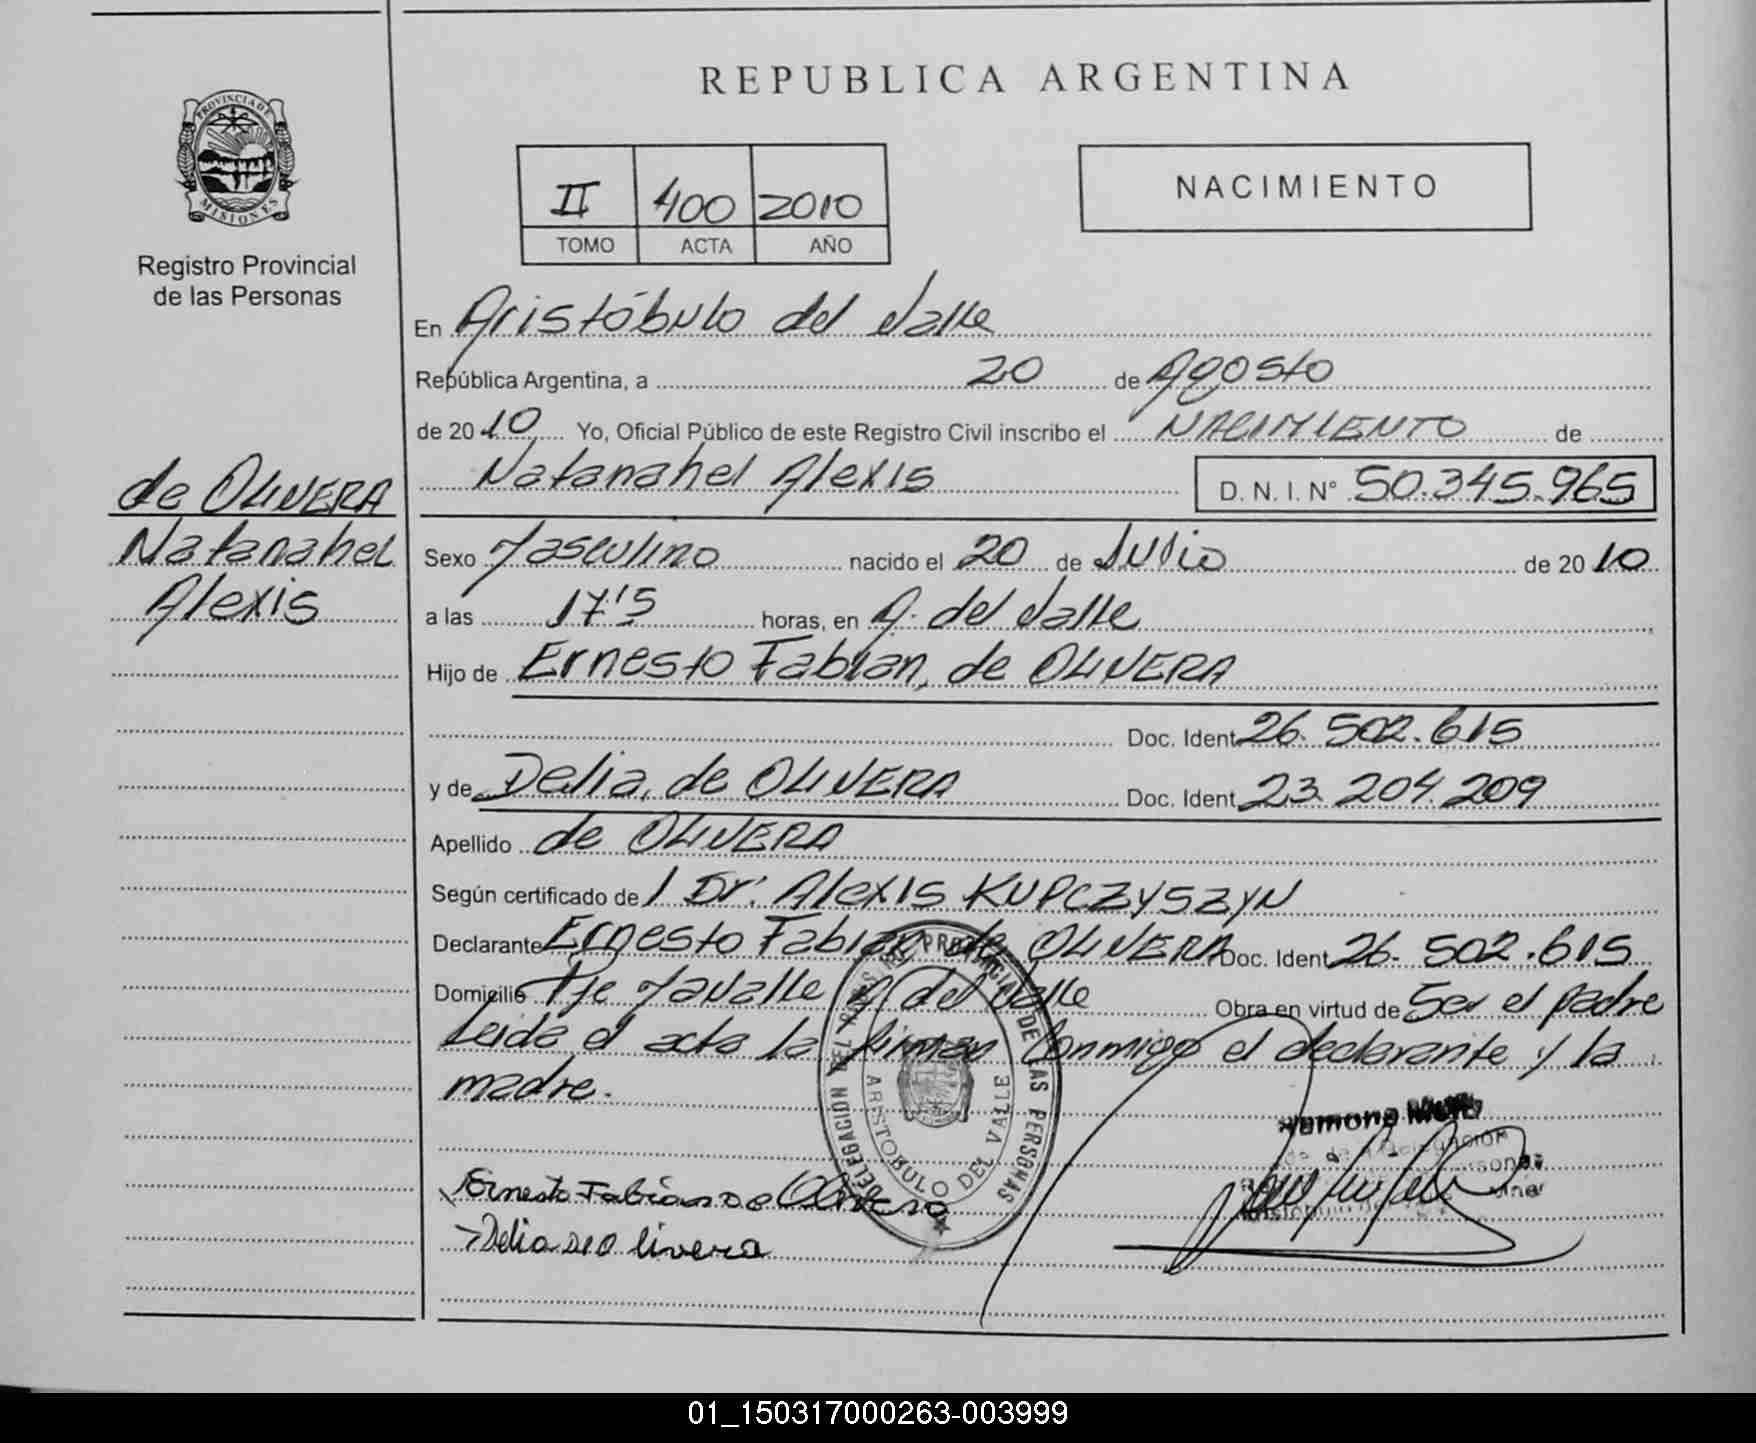 REPUBLICA ARGENTINA
PROVINCIA DE
MISIONES
Registro Provincial
de las Personas
II 400 2010
TOMO ACTA AÑO
NACIMIENTO
En Aristóbulo del Valle
República Argentina, a 20 de Agosto
de 2010 Yo, Oficial Público de este Registro Civil inscribo el NACIMIENTO de
Natanahel Alexis D. N. I. N° 50.345.965
de OLIVERA
Natanahel
Alexis
Sexo Masculino nacido el 20 de Julio de 2010
a las 17'5 horas, en A. del Valle
Hijo de Ernesto Fabian, de OLIVERA
Doc. Ident 26.502.615
y de Delia, de OLIVERA Doc. Ident 23.204.209
Apellido de OLIVERA
Según certificado de / Dr. Alexis KUPCZYSZYN
Declarante Ernesto Fabian de OLIVERA Doc. Ident 26.502.615
Domicilio A. del Valle Obra en virtud de Ser el padre
Leida el acta la firman Conmigo el declarante y la
madre.
DELEGACION DEL DE LAS PERSONAS
ARISTOBULO DEL VALLE
Ramona
Ernesto Fabian De Olivera
Delia de Olivera
01_150317000263-003999